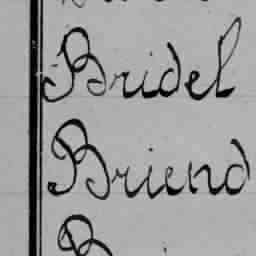 Bridel
Briend